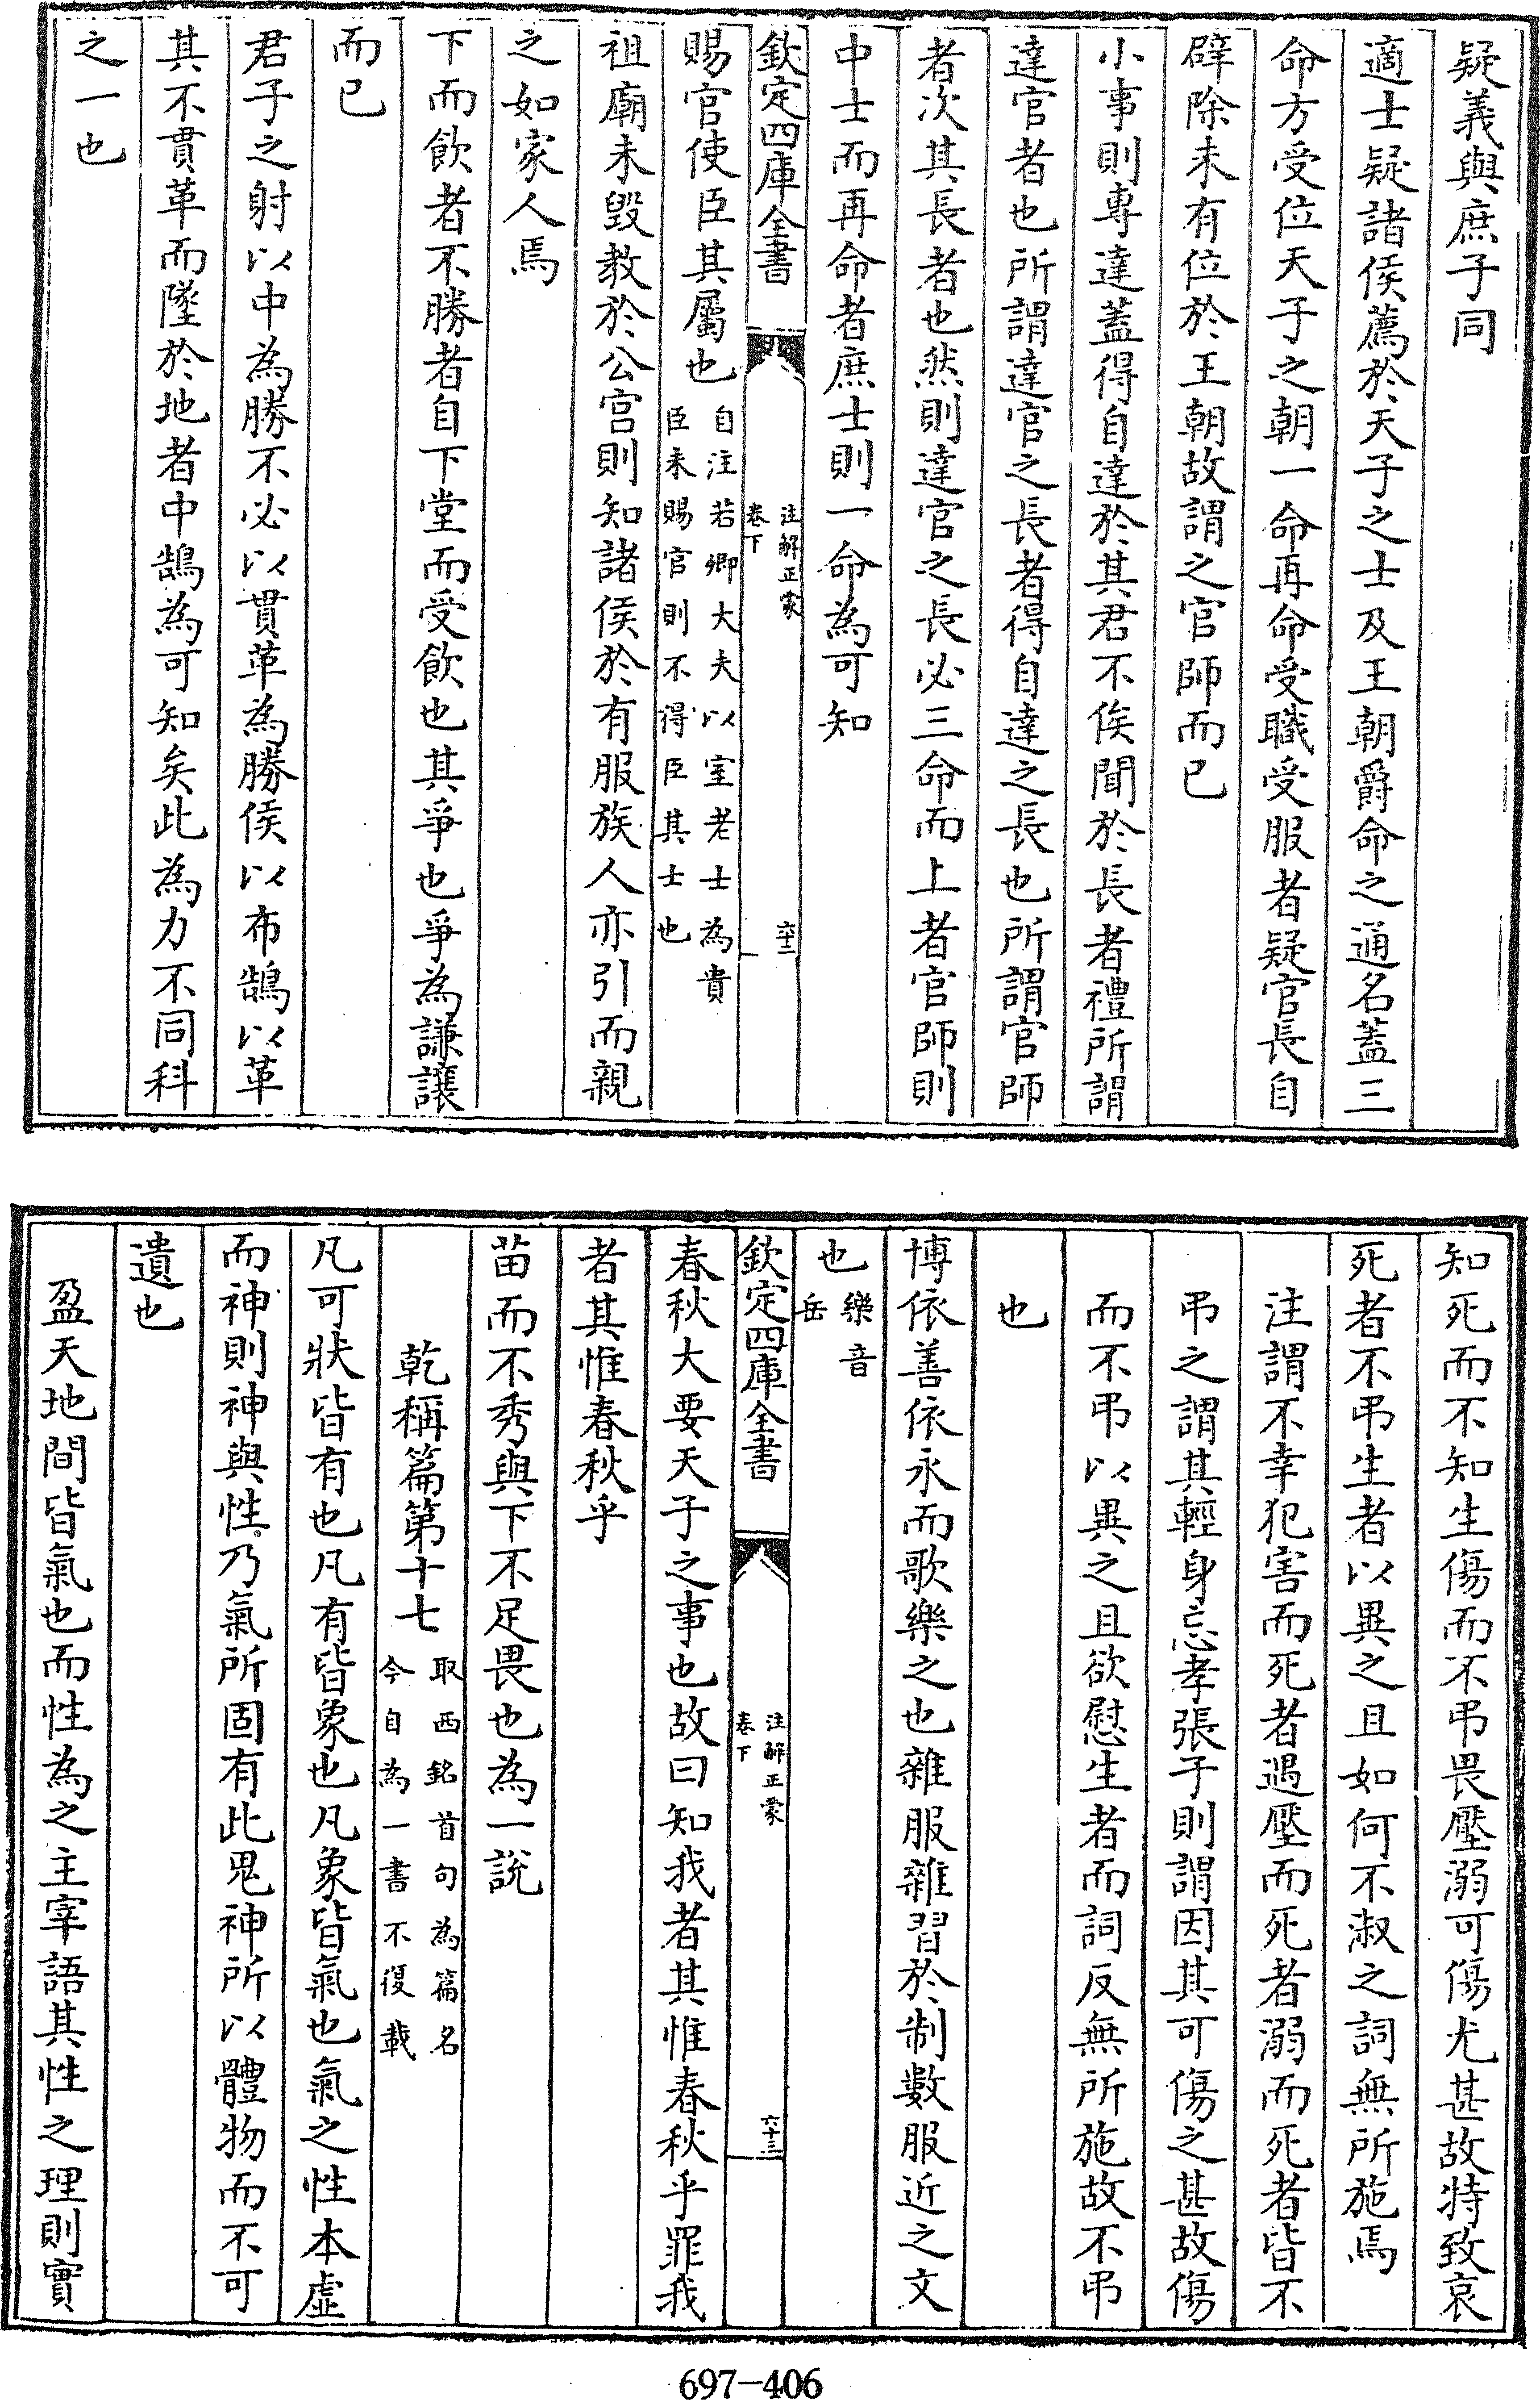 疑義與庶子同
適士疑諸侯薦於天子之士及王朝爵命之通名蓋三
命方受位天子之朝一命再命受職受服者疑官長自
辟除未有位於王朝故謂之官師而已
小事則專達蓋得自達於其君不俟聞於長者禮所謂
達官者也所謂達官之長者得自達之長也所謂官師
者次其長者也然則達官之長必三命而上者官師則
中士而再命者庶士則一命為可知
欽定四庫全書
注解正蒙
卷下
六十二
賜官使臣其屬也
自注若卿大夫以室老士為貴
臣未賜官則不得臣其士也
祖廟未毀教於公宮則知諸侯於有服族人亦引而親
之如家人焉
下而飲者不勝者自下堂而受飲也其爭也爭為謙讓
而已
君子之射以中為勝不必以貫革為勝侯以布鵠以革
其不貫革而墜於地者中鵠為可知矣此為力不同科
之一也
知死而不知生傷而不弔畏壓溺可傷尤甚故特致哀
死者不弔生者以異之且如何不淑之詞無所施焉
注謂不幸犯害而死者遇壓而死者溺而死者皆不
弔之謂其輕身忘孝張子則謂因其可傷之甚故傷
而不弔以異之且欲慰生者而詞反無所施故不弔
也
博依善依永而歌樂之也雜服雜習於制數服近之文
也
樂音
岳
欽定四庫全書
注解正蒙
卷下
六十三
春秋大要天子之事也故曰知我者其惟春秋乎罪我
者其惟春秋乎
苗而不秀與下不足畏也為一說
乾稱篇第十七
取西銘首句為篇名
今自為一書不復載
凡可狀皆有也凡有皆象也凡象皆氣也氣之性本虛
而神則神與性乃氣所固有此鬼神所以體物而不可
遺也
盈天地間皆氣也而性為之主宰語其性之理則實
697-406